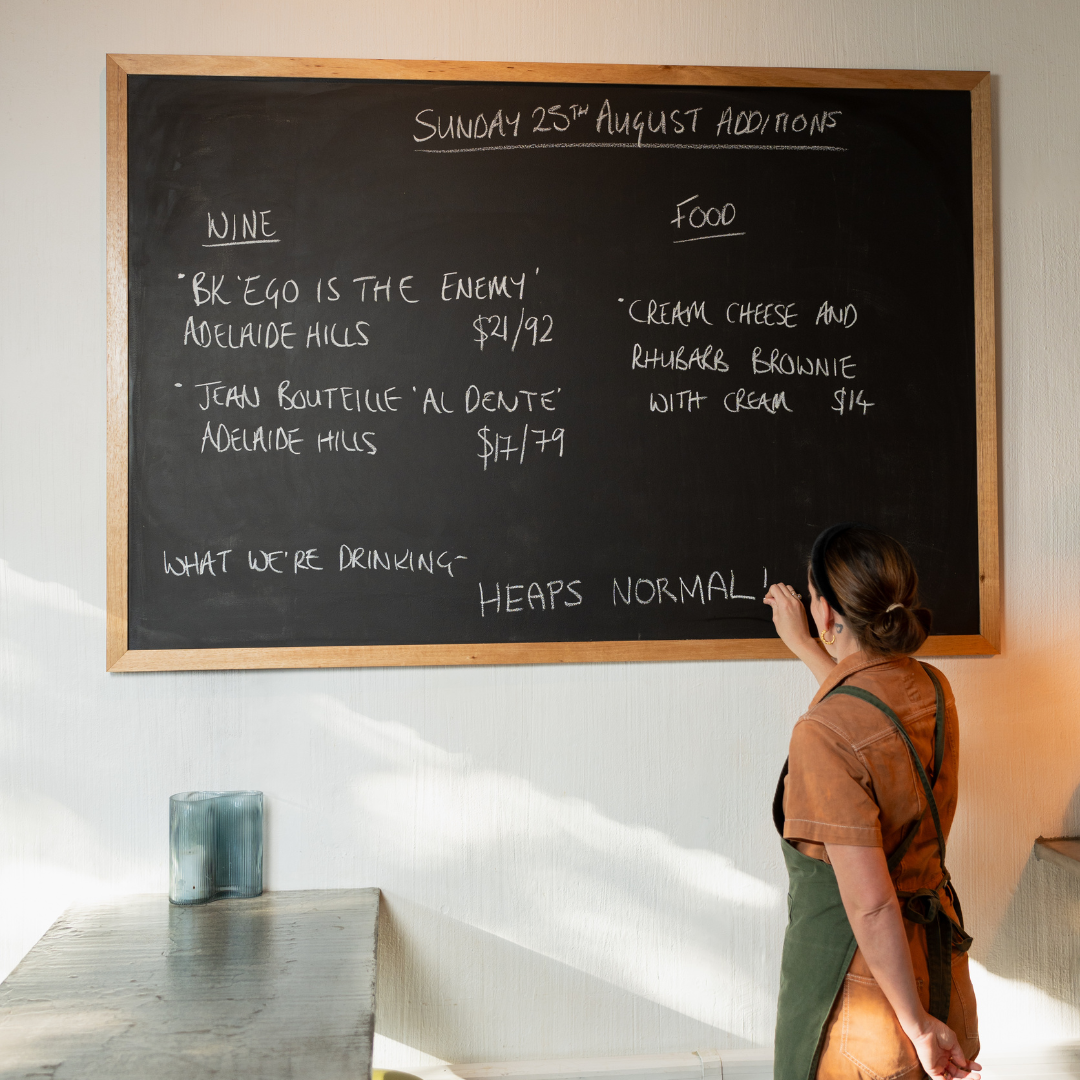 SUNDAY 25TH AUGUST ADDITIONS
WINE
·BK 'EGO IS THE ENEMY'
ADELAIDE HILLS $21/92
· JEAN BOUTEILLE 'AL DENTE'
ADELAIDE HILLS $17/79
FOOD
·CREAM CHEESE AND
RHUBARB BROWNIE
WITH CREAM $14
WHAT WE'RE DRINKING-
HEAPS NORMAL!